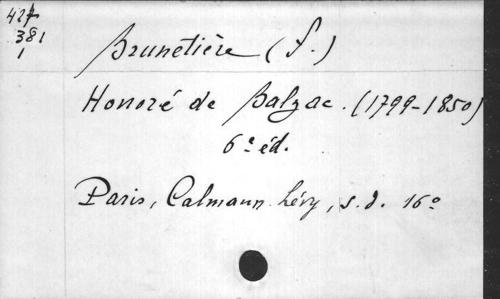 427
381
1
Brunetière (F.)
Honoré de Balzac. (1799-1850)
6e éd.
Paris, Calmann Lévy, s.d. 16o